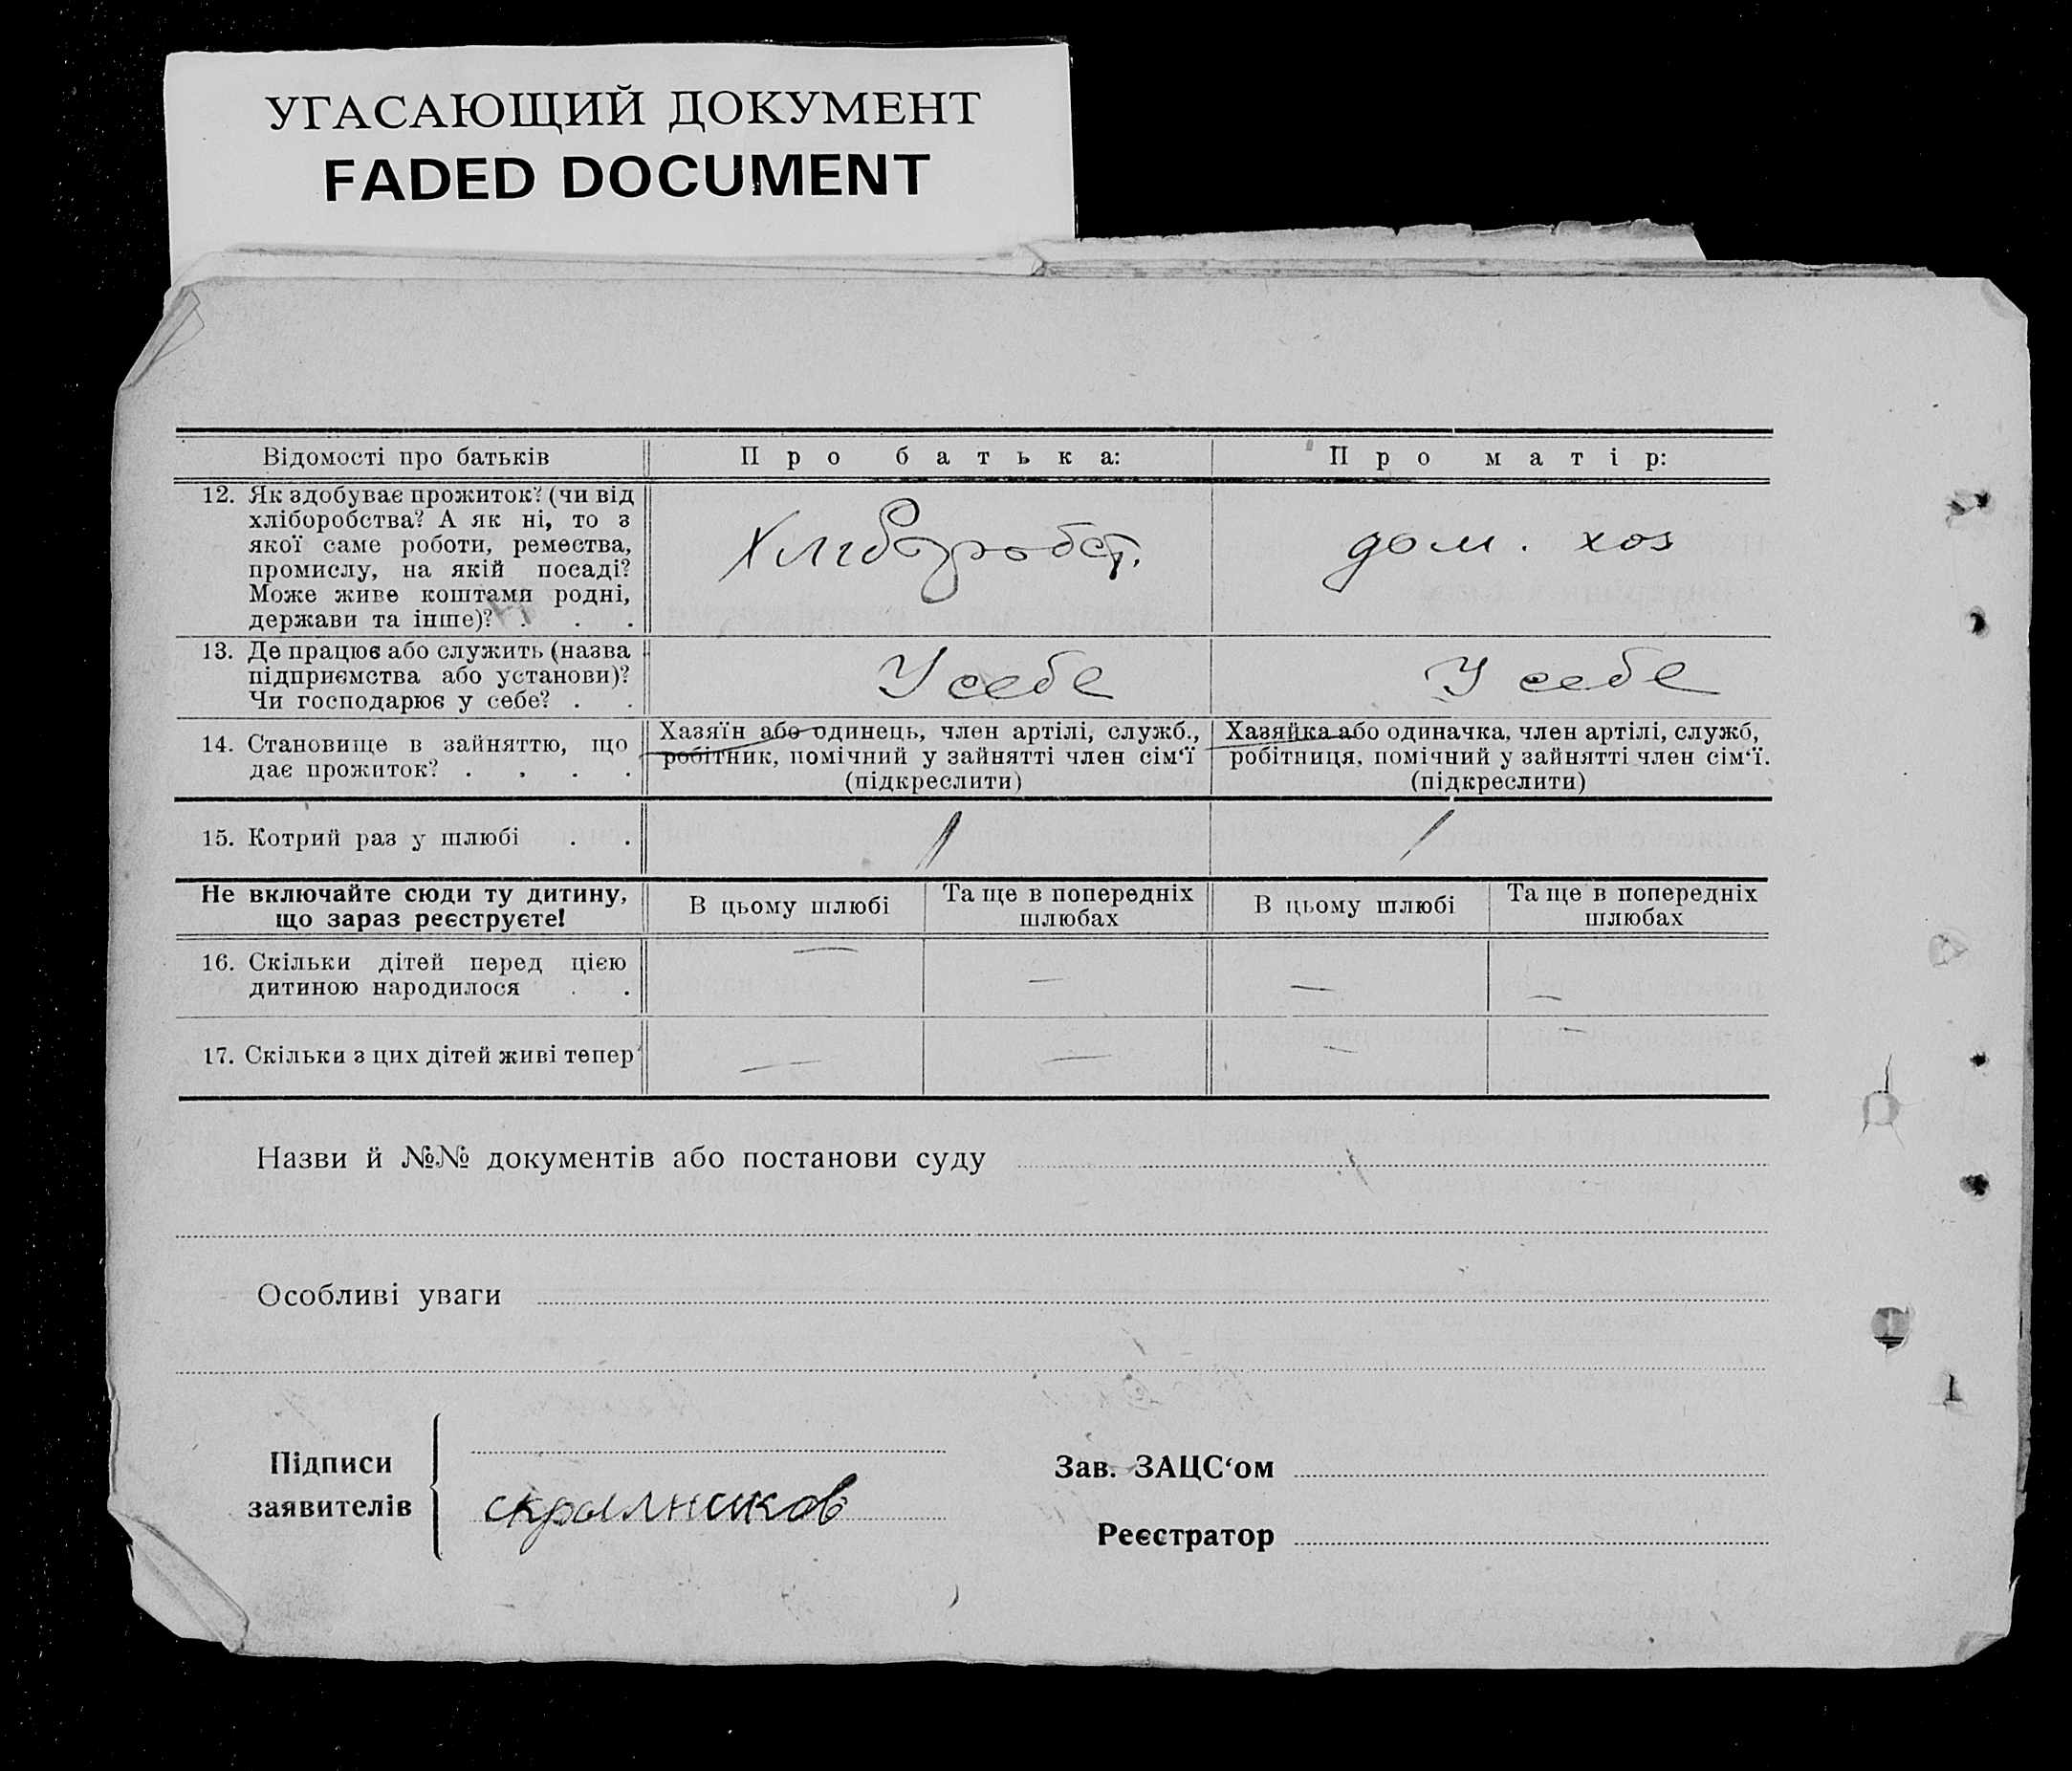 УГАСАЮЩИЙ ДОКУМЕНТ
FADED DOCUMENT
Відомості про батьків
Про батька:
Про матір:
12. Як здобуває прожиток? (чи від
хліборобства? А як ні, то з
якої саме роботи, ремества,
промислу, на якій посаді?
Може живе коштами родні,
держави та інше)? . . .
Хліборобст.
дом. хоз
13. Де працює або служить (назва
підприємства або установи)?
Чи господарює у себе? . .
У себе
У себе
14. Становище в зайняттю, що
дає прожиток? . . . .
Хазяїн або одинець, член артілі, служб.,
робітник, помічний у зайнятті член сім‘ї
(підкреслити)
Хазяйка або одиначка, член артілі, служб,
робітниця, помічний у зайнятті член сім‘ї.
(підкреслити)
15. Котрий раз у шлюбі . .
1
1
Не включайте сюди ту дитину,
що зараз реєструєте!
В цьому шлюбі
Та ще в попередніх
шлюбах
В цьому шлюбі
Та ще в попередніх
шлюбах
16. Скільки дітей перед цією
дитиною народилося . .
— — — —
17. Скільки з цих дітей живі тепер
— — — —
Назви й №№ документів або постанови суду
Особливі уваги
Підписи
заявителів
Зав. ЗАЦС‘ом
Реєстратор